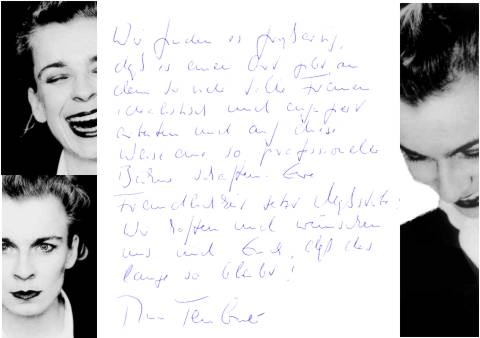 Wir finden es großartig,
daß es einen Ort gibt an
dem so viele Frauen
und engagiert
arbeiten und auf diese
Weise eine so professionelle
Bühne schaffen. Eure
Freundlichkeit setzt Maßstäbe!
Wir hoffen und wünschen
uns und Euch, daß das
lange so bleibt!